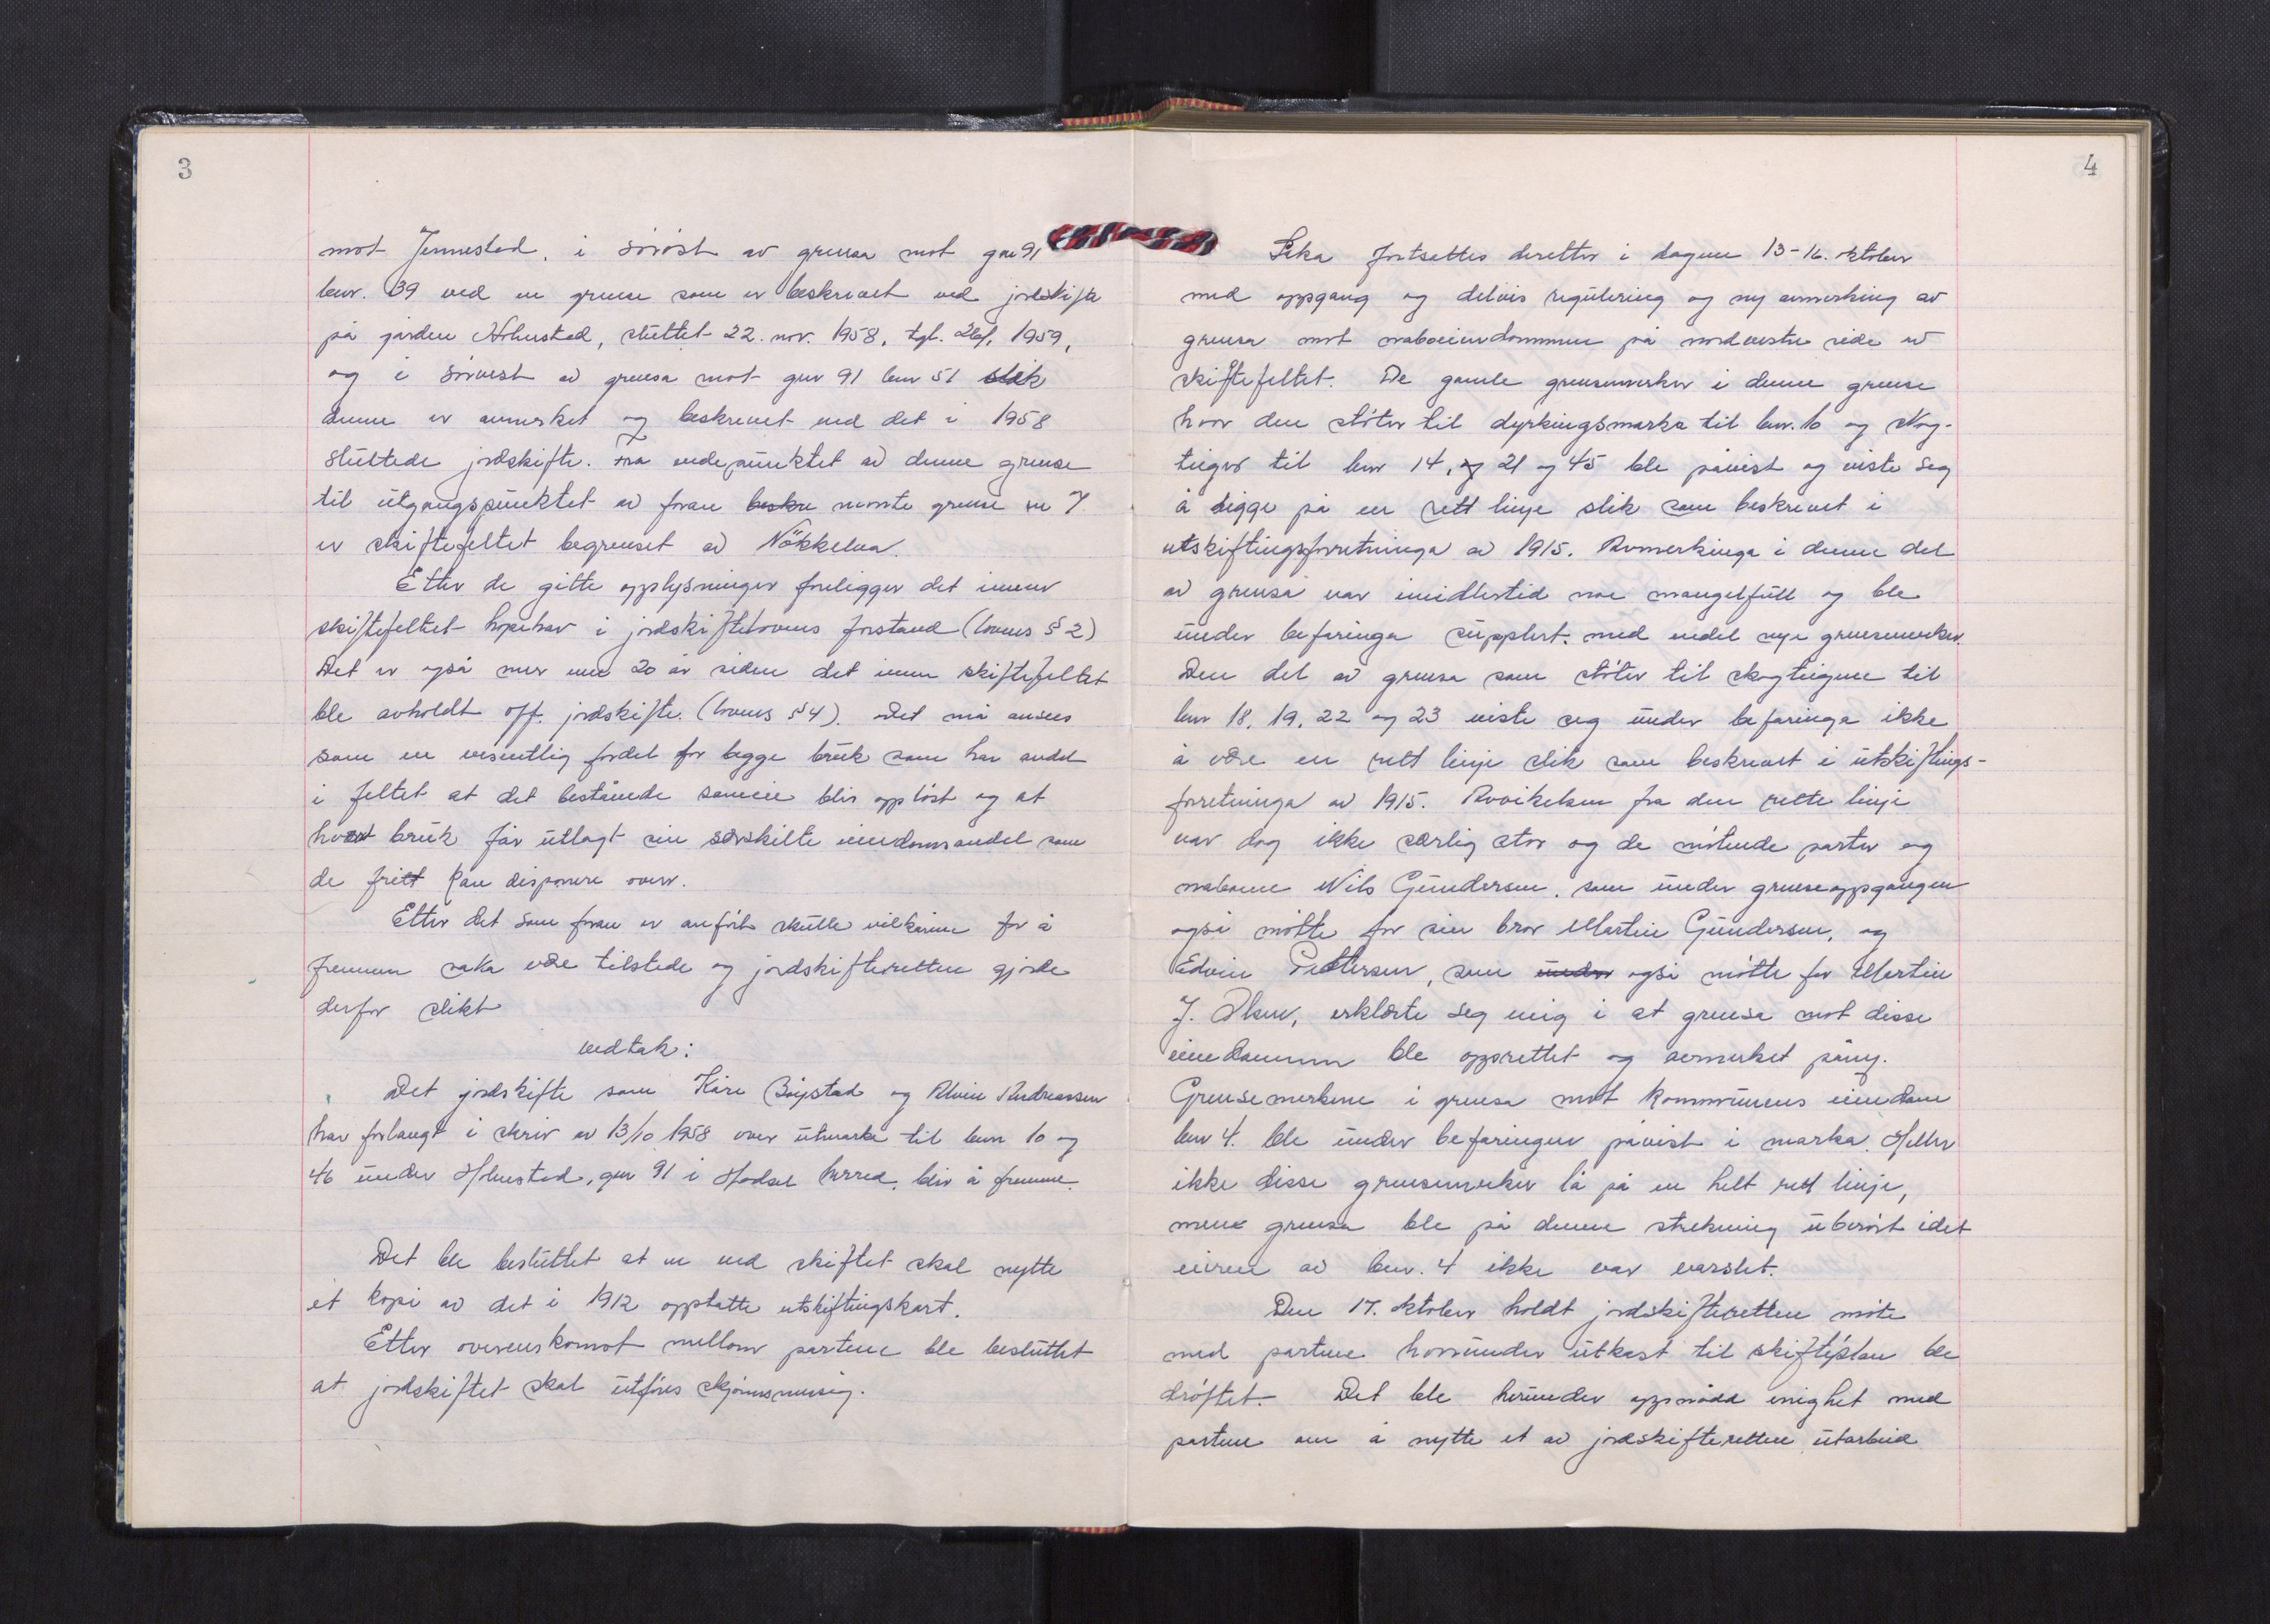 3
mot Jennestad, i sörøst av grensa mot gnr 91
bnr. 39 ved en grense som er beskrevet ved jordskifte
på garden Holmstad, sluttet 22. nov. 1958, tgl. 1959,
og i sørvest av grensa mot gnr 91 bnr 51 slik
denne er avmerket og beskrevet ved det i 1958
sluttede jordskifte. Fra endepunktet av denne grense
til utgangspunktet av foran beskre nevnte grense nr 7
er skiftefeltet begrenset av Nökkelva.
Etter de gitte opplysninger foreligger det innen
skiftefeltet hopehav i jordskiftelovens forstand (lovens § 2)
Det er også mer enn 20 år siden det innen skiftefeltet
ble avholdt off. jordskifte. (lovens § 4). Det må ansees
som en vesentlig fordel for begge bruk som har andel
i feltet at det bestående sameie blir oppløst og at
hvert bruk får utlagt sin særskilte eiendomsandel som
de fritt kan disponere over.
Etter det som foran er anført skulle vilkårene for å
fremme saka være tilstede og jordskifteretten gjorde
derfor slikt
vedtak:
Det jordskifte som Kåre Bøgstad og Alvin Andreassen
har forlangt i skriv av 13/10 1958 over utmarka til bnr 10 og
46 under Holmstad, gnr 91 i Hadsel herred, blir å fremme.
Det ble besluttet at en ved skiftet skal nytte
et kopi av det i 1912 opptatte utskiftingskart.
Etter overenskomst mellom partene ble besluttet
at jordskiftet skal utføres skjønnsmessig.
4
Saka fortsettes deretter i dagene 13-16. oktober
med oppgang og delvis regulering og ny avmerking av
grensa mot naboeiendommene på nordvestre side av
skiftefeltet. De gamle grensemerker i denne grense
hvor den støter til dyrkingsmarka til bnr. 10 og skog-
teiger til bnr 14, og 21 og 45 ble påvist og viste seg
å ligge på en rett linje slik som beskrevet i
utskiftingsforretninga av 1915. Avmerkinga i denne del
av grensa var imidlertid noe mangelfull og ble
under befaringa supplert med endel nye grensemerker.
Den del av grensa som støter til skogteigene til
bnr 18, 19, 22 og 23 viste seg under befaringa ikke
å være en rett linje slik som beskrevet i utskiftings-
forretninga av 1915. Avvikelsen fra den rette linje
var dog ikke særlig stor og de møtende parter og
naboene Nils Gundersen, som under grenseoppgangen
også møtte for sin bror Martin Gundersen, og
Edvin Pettersen, som under også møtte for Martin
J. Olsen, erklærte seg enig i at grensa mot disse
eiendommer ble opprettet og avmerket påny.
Grensemerkene i grensa mot kommunens eiendom
bnr 4. ble under befaringen påvist i marka. Heller
ikke disse grensemerker lå på en helt rett linje,
men grensa ble på denne strekning uberørt idet
eieren av bnr. 4 ikke var varslet.
Den 17. oktober holdt jordskifteretten møte
med partene hvorunder utkast til skifteplan ble
drøftet. Det ble herunder oppnådd enighet med
partene om å nytte et av jordskifteretten utarbeid